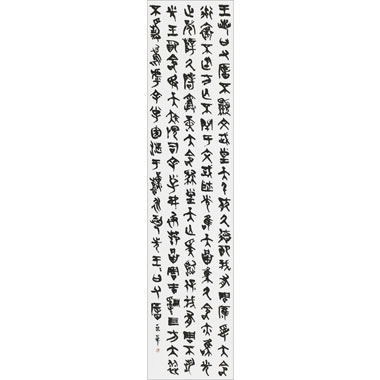 王若曰父厝不顯文武皇天引厭厥德配我有周膺受大命
率懷不廷方亡不閈于文武耿光唯天集厥命亦唯先
正厥辟勞堇大命肆皇天亡斁臨保我有周不巩
先王配命旻天疾畏司余小子弗彶邦將曷吉四方大縱
不靜烏虖余小子圂湛于艱永巩先王王曰父厝